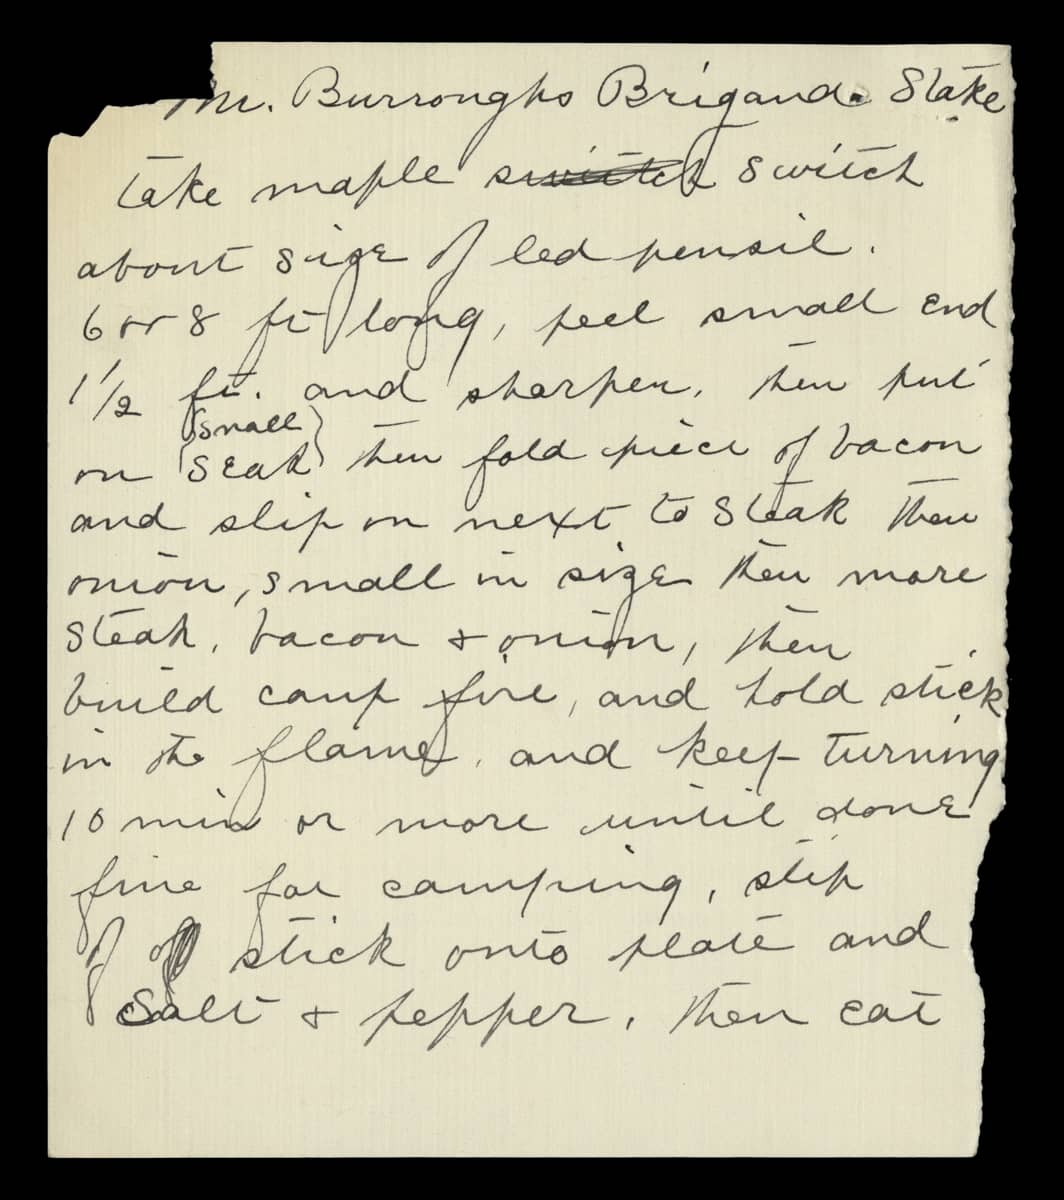 Mr. Burroughs Brigand. Stake
take maple switch switch
about size of led pensil.
6 or 8 ft long, peel small end
1 1/2 ft. and sharpen, then put
{small}
on {Steak} then fold piece of bacon
and slip on next to Steak then
onion, small in size then more
Steak, bacon & onion, then
build camp fire, and hold stick
in the flame. and keep turning
10 min or more until done
fine for camping, slip
of of stick onto plate and
Salt & pepper, then eat